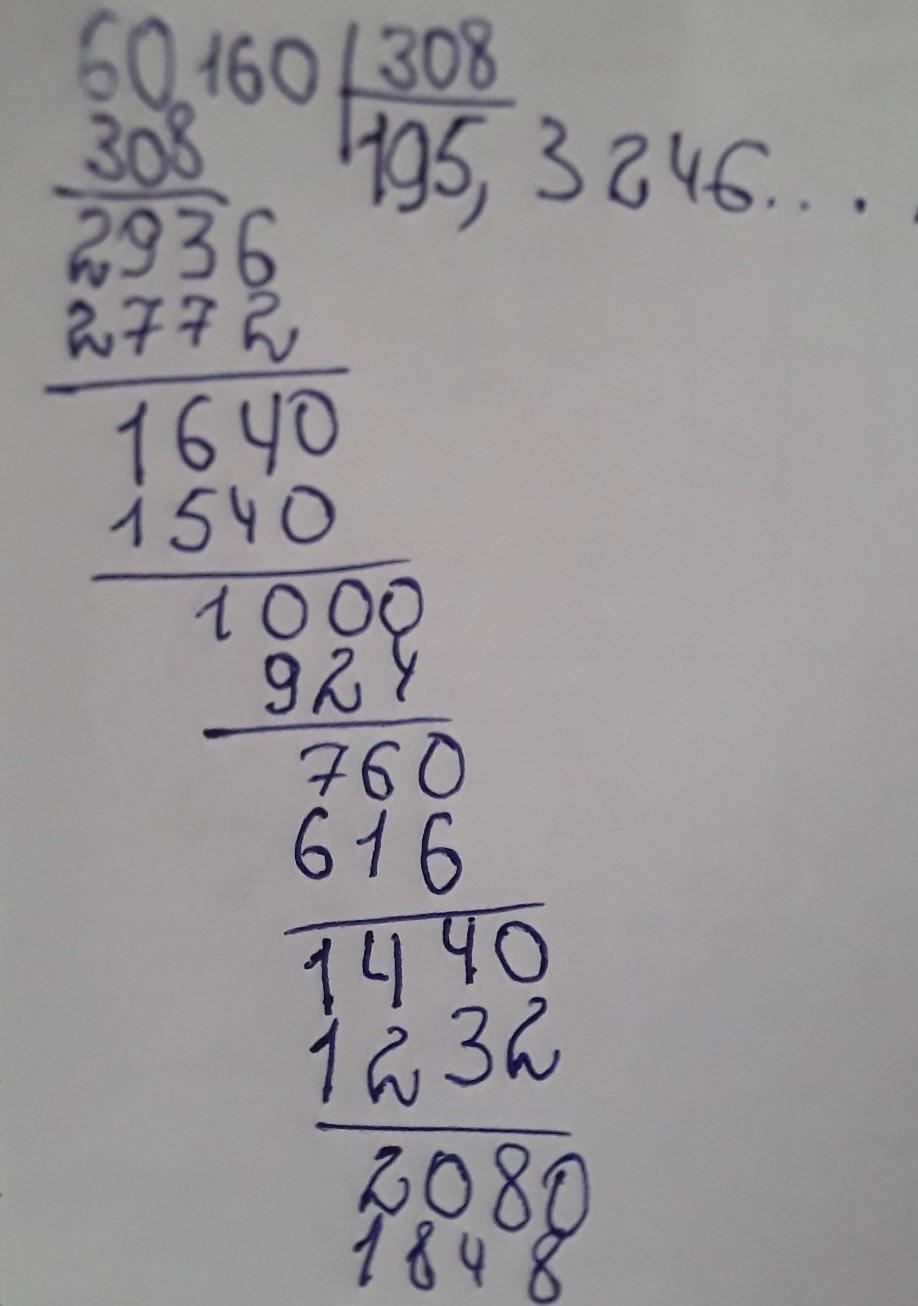 60160 308
308 195,3246...
2936
2772
1640
1540
1000
924
760
616
1440
1232
2080
1848